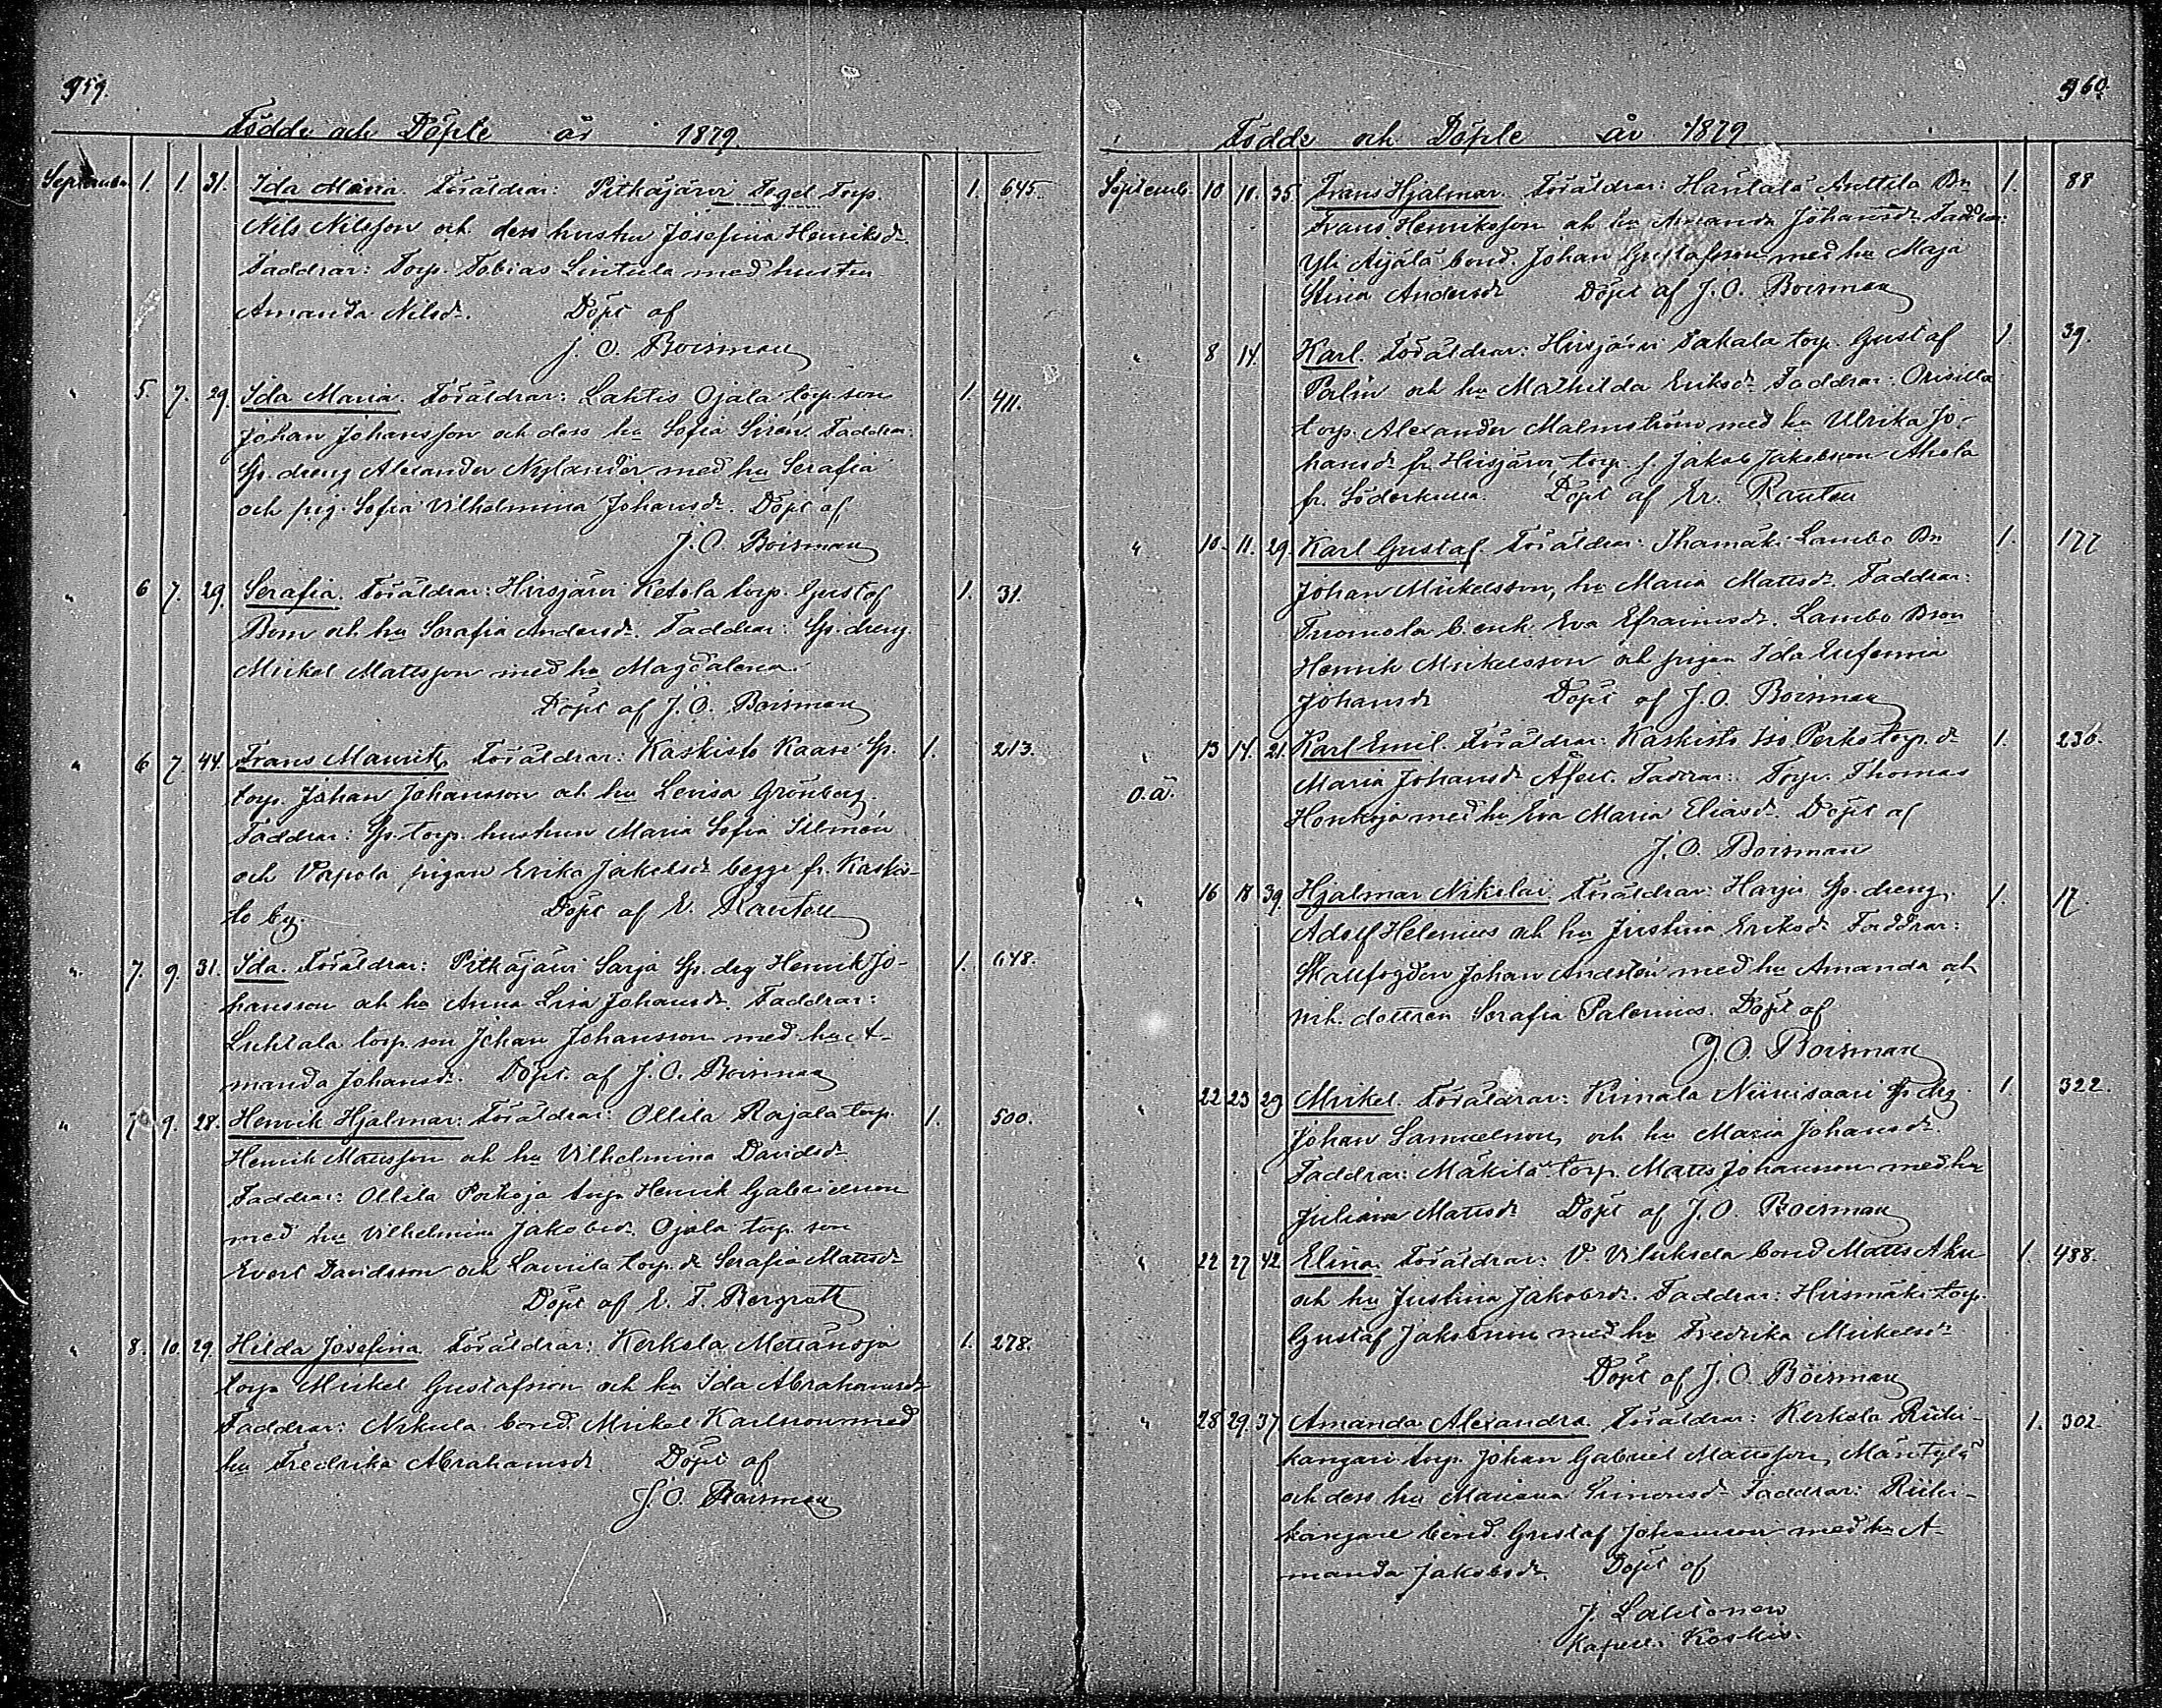 959.
Födde och Döpte år 1879.
September 1. 1. 31. Ida Maria. Föräldrar: Pitkäjärvi Tegel Torp. 1. 645.
Nils Nilsson och dess hustru Josefina Henriksdr.
Faddrar: Torp. Tobias Lintula med hustru
Amanda Nilsdr. Döpt af
J. O. Boisman
" 5. 7. 29. Ida Maria. Föräldrar: Lahtis Ojala torp. son 1. 411.
Johan Johansson och dess hu Sofia Sirén. Faddrar:
Sp. dreng Alexander Nylander med hu Serafia
och pig. Sofia Vilhelmina Johansdr. Döpt af
J. O. Boisman
" 6 7. 29. Serafia. Föräldrar: Hirsjärvi Ketola torp. Gustaf 1. 31.
Bom och hu Serafia Andersdr. Faddrar: Sp. dreng
Mickel Mattsson med hu Magdalena.
Döpt af J. O. Boisman
" 6 7. 44. Frans Maurits. Föräldrar: Kaskisto Kaase Sp. 1. 213.
torp. Johan Johansson och hu Lovisa Grönberg.
Faddrar: Sp. torp. hustrun Maria Sofia Silmén
och Papola pigan Erika Jakobsdr begge fr. Kaskis-
to by. Döpt af E. Rauten
" 7. 9. 31. Ida. Föräldrar: Pitkäjärvi Sarja Sp. drg Henrik Jo- 1. 648.
hansson och hu Anna Lisa Johansdr. Faddrar:
Luhtala torp. son Johan Johansson med hu A-
manda Johansdr. Döpt. af J. O. Boisman
" 7 9. 28. Henrik Hjalmar: Föräldrar: Ollila Rajala torp. 1. 500.
Henrik Mattsson och hu Vilhelmina Davidsdr
Faddrar: Ollila Porkoja torp. Henrik Gabrielsson
med hu Vilhelmina Jakobsdr. Ojala torp. son
Evert Davidsson och Laurila torp. dr Serafia Mattsdr
Döpt af E. T. Bergroth
" 8. 10. 29. Hilda Josefina Föräldrar: Kerkola Mettänoja 1. 278.
torp Mickel Gustafsson och hu Ida Abrahamsdr
Faddrar: Nikula bond. Mickel Karlsson med
hu Fredrika Abrahamsdr. Döpt af
J. O. Boisman
960.
Födde och Döpte år 1879
Septemb. 10 10. 35. Frans Hjalmar. Föräldrar: Häntälä Anttila Bn 1. 88
Frans Henriksson och hu Amanda Johansdr Faddrar:
Yli Äijälä bond. Johan Gustafsson med hu Maja
Stina Andersdr Döpt af J. O. Boisman
" 8 14. Karl. Föräldrar: Hirsjärvi Takala torp. Gustaf 1. 39.
Palin och hu Mathilda Eriksdr Faddrar: Orisilla
torp. Alexander Malmström med hu Ulrika Jo-
hansdr fr. Hirsjärvi, torp. s. Jakob Jakobsson Ahola
fr. Söderkulla. Döpt af Er. Rauten
" 10. 11. 29. Karl Gustaf. Föräldrar: Ihamäki Lambo Bn 1. 177
Johan Mickelsson, hu Maria Mattsdr. Faddrar:
Tuomola b. enk. Eva Efraimsdr. Lambo Bson
Henrik Mickelsson och pigan Ida Eufemia
Johansdr Döpt af J. O. Boisman
" 13 14. 21. Karl Emil. Föräldrar: Kaskisto Iso Perko torp. dr 1. 236.
o.ä. Maria Johansdr Åfelt. Faddrar: Torp. Thomas
Honkoja med hu Eva Maria Eliasdr. Döpt af
J. O. Boisman
" 16 18 39. Hjalmar Nikolai. Föräldrar: Harju Sp. dreng 1. 17.
Adolf Helenius och hu Justina Eriksdr Faddrar:
Skallfogden Johan Andsten med hu Amanda och
inh. dottren Serafia Palenius. Döpt af
J. O. Boisman
" 22 23 29 Mickel. Föräldrar: Kimala Niinisaari Sp. drg 1. 322.
Johan Samuelsson, och hu Maria Johansdr.
Faddrar: Mäkilä torp. Matts Johansson med hu
Juliana Mattsdr Döpt af J. O. Boisman
" 22 27 42 Elina. Föräldrar: V. Viluksela bond Matts Aku 1. 488.
och hu Justina Jakobsdr. Faddrar: Hirsmäki torp.
Gustaf Jakobsson med hu Fredrika Mickelsdr
Döpt af J. O. Boisman
" 28 29. 37 Amanda Alexandra Föräldrar: Kerkola Riihi- 1. 302.
kangari torp. Johan Gabriel Mattsson, Mäntylä
och dess hu Mariana Simonsdr Faddrar: Riihi-
kangare bond. Gustaf Johansson med hu A-
manda Jakobsdr. Döpt af
J. Lahtonen
Kapell. Koskis.